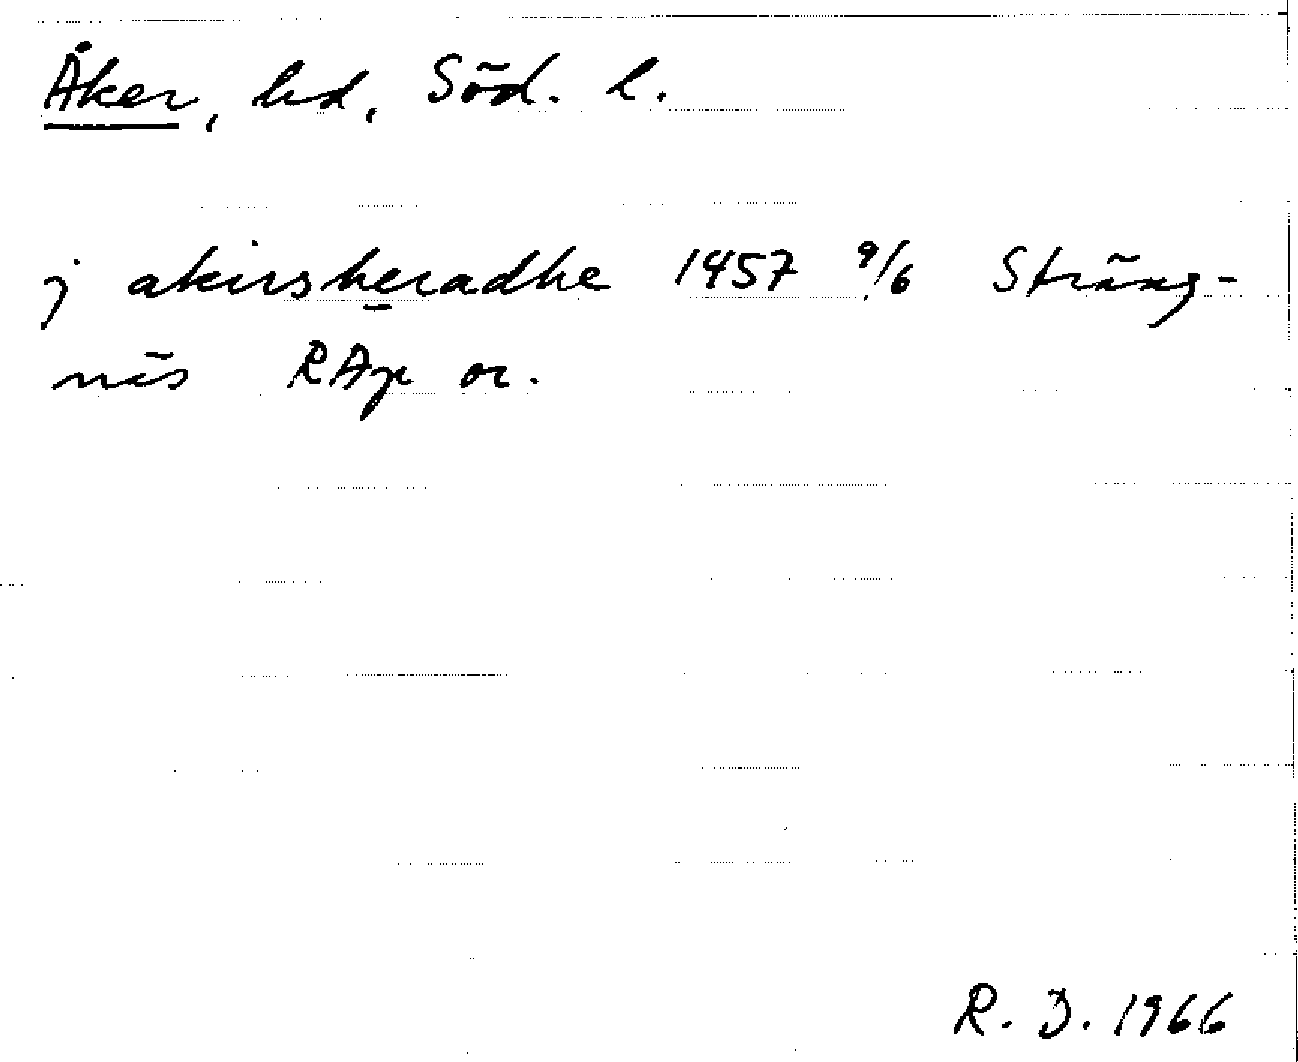 Åker, hd, Söd. l.
j akirsheradhe 1457 9/6 Sträng-
näs RAp or.
R. D. 1966